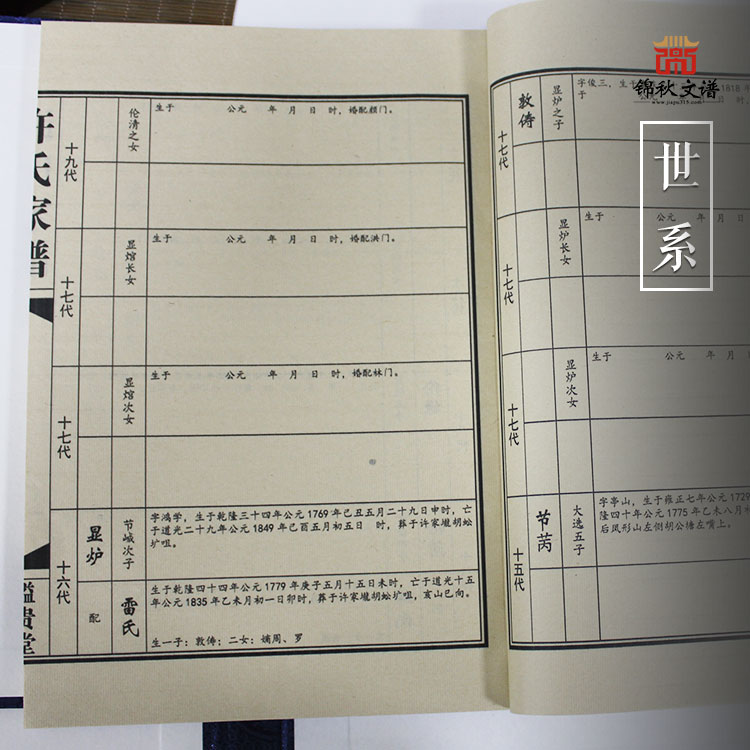 许氏家谱
十九代
伦清之女
生于 公元 年 月 日 时，婚配顾门。
十七代
显焰长女
生于 公元 年 月 日 时，婚配洪门。
十七代
显焰次女
生于 公元 年 月 日 时，婚配林门。
十六代
显炉
节崊次子
字鸿学，生于乾隆三十四年公元1769年己丑五月二十九日申时，亡
于道光二十九年公元1849年己酉五月初五日 时，葬于许家墟胡蚣
圹咀。
配
雷氏
生于乾隆四十四年公元1779年庚子五月十五日未时，亡于道光十五
年公元1835年乙未月初一日卯时，葬于许家墟胡蚣圹咀，亥山巳向。
生一子：敦俦；二女：嫡周、罗
堂
十七代
敦俦
显炉之子
字俊三，生于
于
1818年
时
十七代
显炉长女
生于 公元 年 月
十七代
显炉次女
生于 公元 年 月
十五代
节芮
大选五子
字亭山，生于雍正七年公元1729
隆四十年公元1775年乙未八月初
后凤形山左侧胡公塘左嘴上。
锦秋文谱
www.jiapu315.com
世系